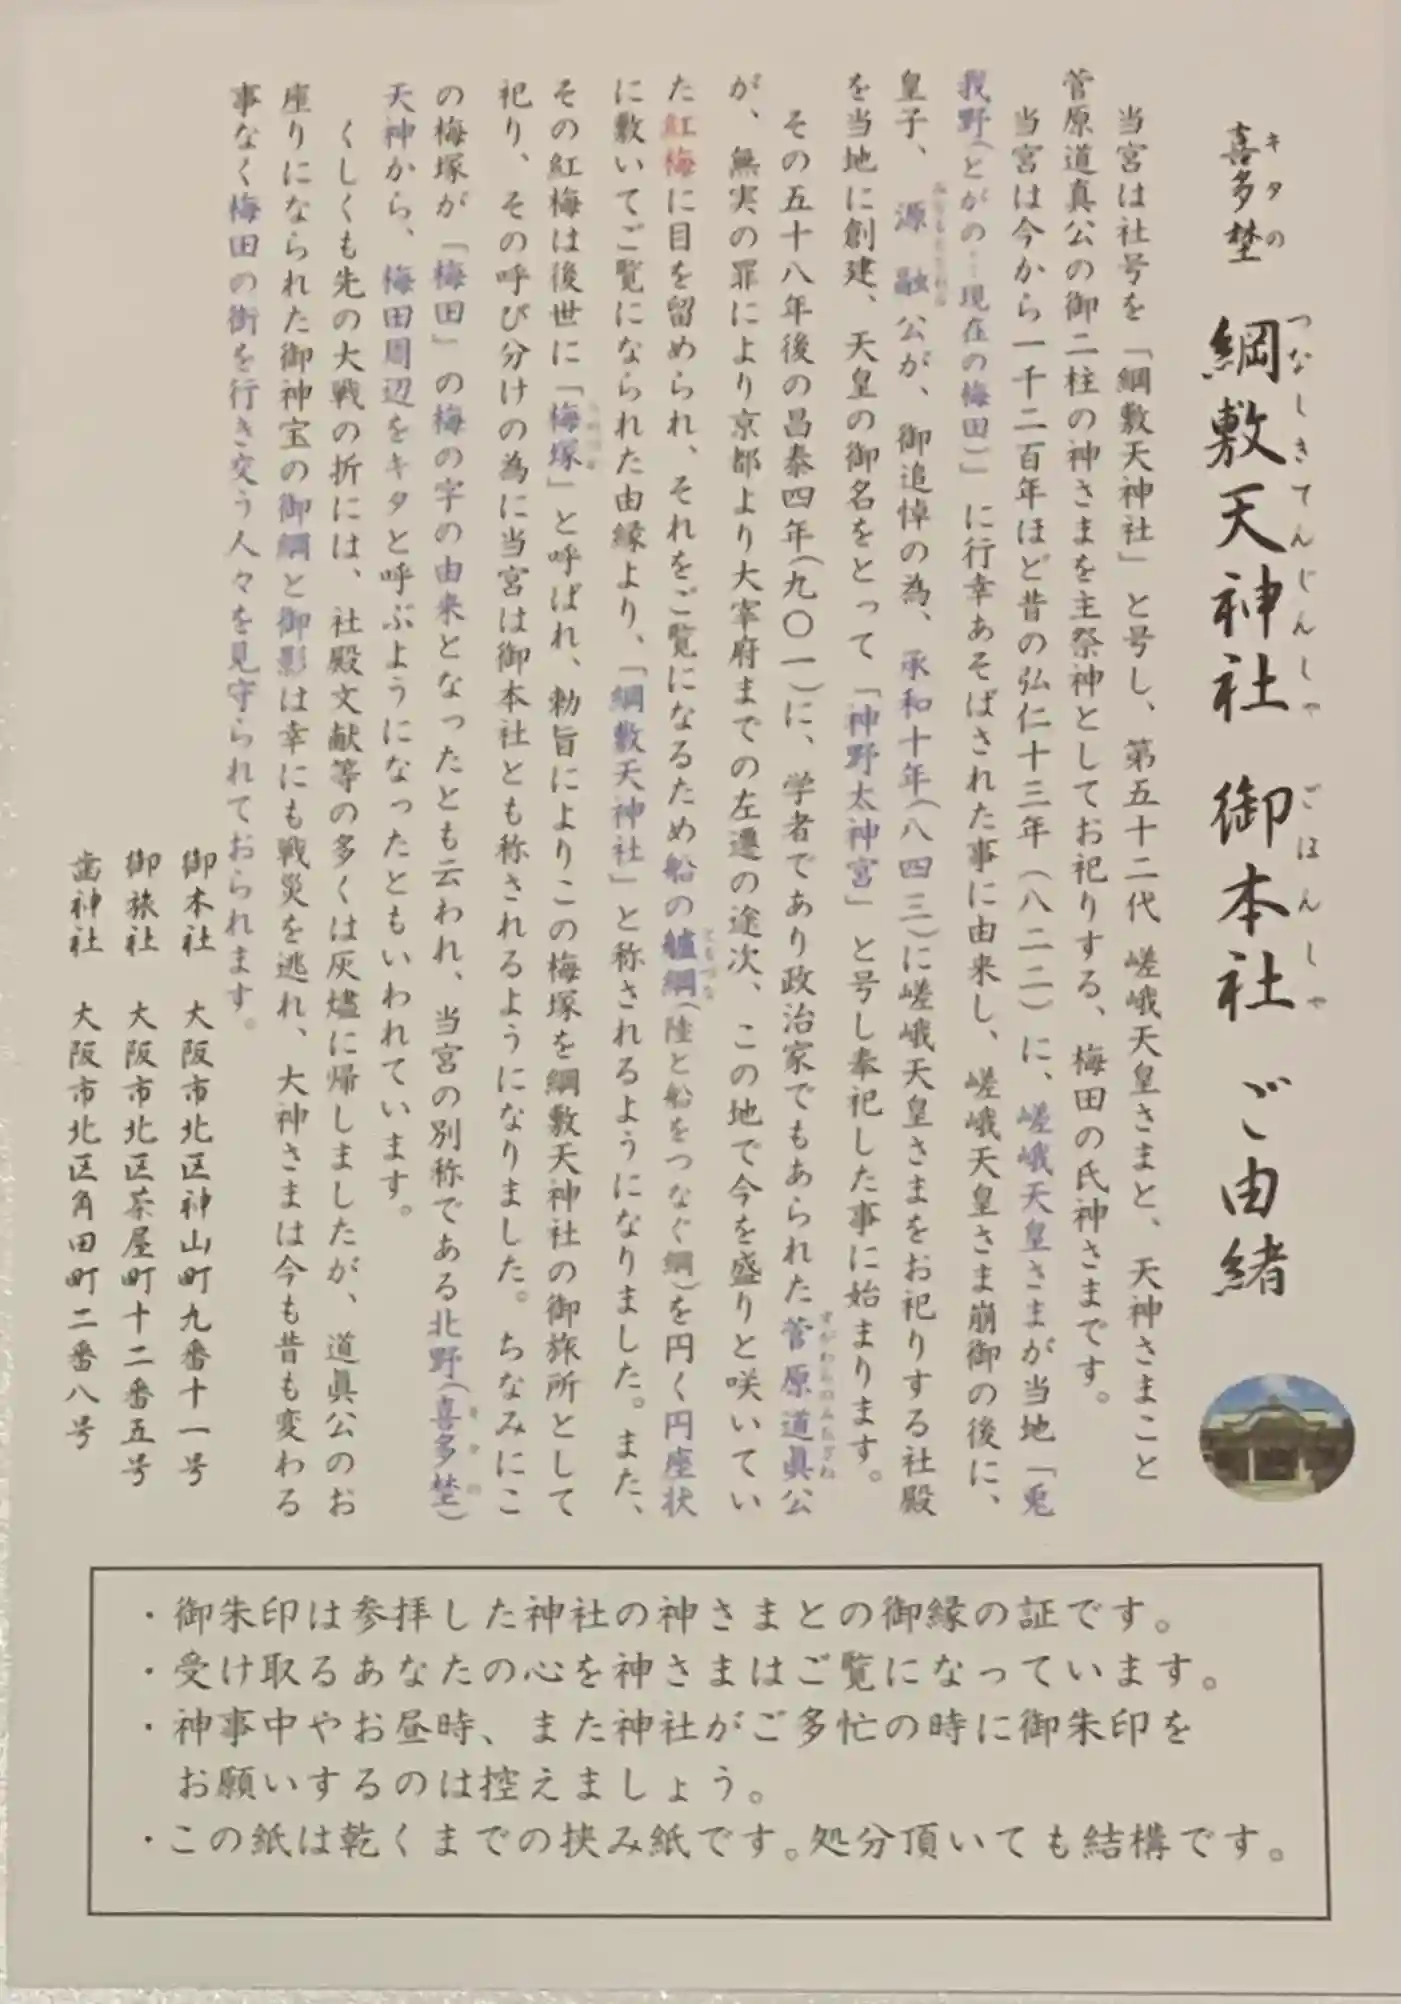 喜多埜 綱敷天神社 御本社 ご由緒
キタの つなしきてんじんしゃ ごほんしゃ
当宮は社号を「綱敷天神社」と号し、第五十二代 嵯峨天皇さまと、天神さまこと
菅原道真公の御二柱の神さまを主祭神としてお祀りする、梅田の氏神さまです。
当宮は今から一千二百年ほど昔の弘仁十三年(八二二)に、嵯峨天皇さまが当地「兎
我野(とがの…現在の梅田)」に行幸あそばされた事に由来し、嵯峨天皇さま崩御の後に、
皇子、源融公が、御追悼の為、承和十年(八四三)に嵯峨天皇さまをお祀りする社殿
みなもとのとおる
を当地に創建、天皇の御名をとって「神野太神宮」と号し奉祀した事に始まります。
その五十八年後の昌泰四年(九〇一)に、学者であり政治家でもあられた菅原道眞公
すがわらのみちざね
が、無実の罪により京都より大宰府までの左遷の途次、この地で今を盛りと咲いてい
た紅梅に目を留められ、それをご覧になるため船の艫綱(陸と船をつなぐ綱)を円く円座状
ともづな
に敷いてご覧になられた由縁より、「綱敷天神社」と称されるようになりました。また、
その紅梅は後世に「梅塚」と呼ばれ、勅旨によりこの梅塚を綱敷天神社の御旅所として
うめづか
祀り、その呼び分けの為に当宮は御本社とも称されるようになりました。ちなみにこ
の梅塚が「梅田」の梅の字の由来となったとも云われ、当宮の別称である北野(喜多埜)
きたの
天神から、梅田周辺をキタと呼ぶようになったともいわれています。
くしくも先の大戦の折には、社殿文献等の多くは灰燼に帰しましたが、道眞公のお
座りになられた御神宝の御綱と御影は幸にも戦災を逃れ、大神さまは今も昔も変わる
事なく梅田の街を行き交う人々を見守られておられます。
御本社 大阪市北区神山町九番十一号
御旅社 大阪市北区茶屋町十二番五号
歯神社 大阪市北区角田町二番八号
・御朱印は参拝した神社の神さまとの御縁の証です。
・受け取るあなたの心を神さまはご覧になっています。
・神事中やお昼時、また神社がご多忙の時に御朱印を
お願いするのは控えましょう。
・この紙は乾くまでの挟み紙です。処分頂いても結構です。